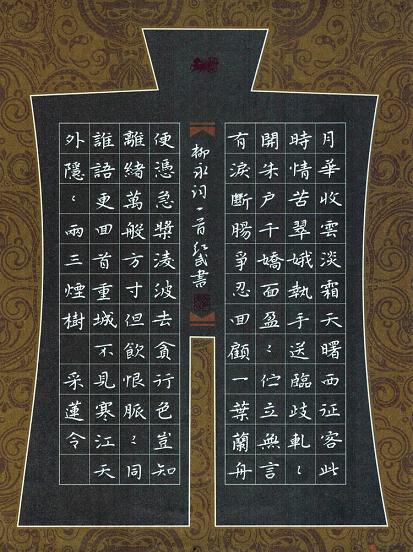 月華收雲淡霜天曙西征客此
時情苦翠娥執手送臨歧軋〻
開朱戶千嬌面盈〻佇立無言
有淚斷腸爭忍回顧一葉蘭舟
柳永词一首红武書
便憑急槳淩波去貪行色豈知
離緒萬般方寸但飲恨脈〻同
誰語更回首重城不見寒江天
外隱〻兩三煙樹 采蓮令